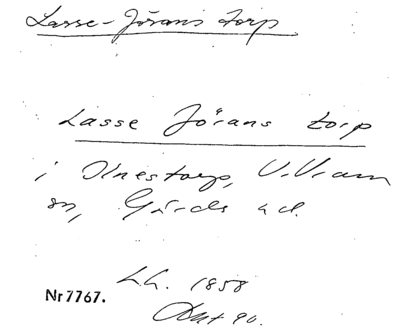 Lasse-Jörans torp
Lasse Jörans torp
i Olnestorp, V. Vram
sn, Gärds hd.
L.h. 1858
Akt 90.
Nr 7767.